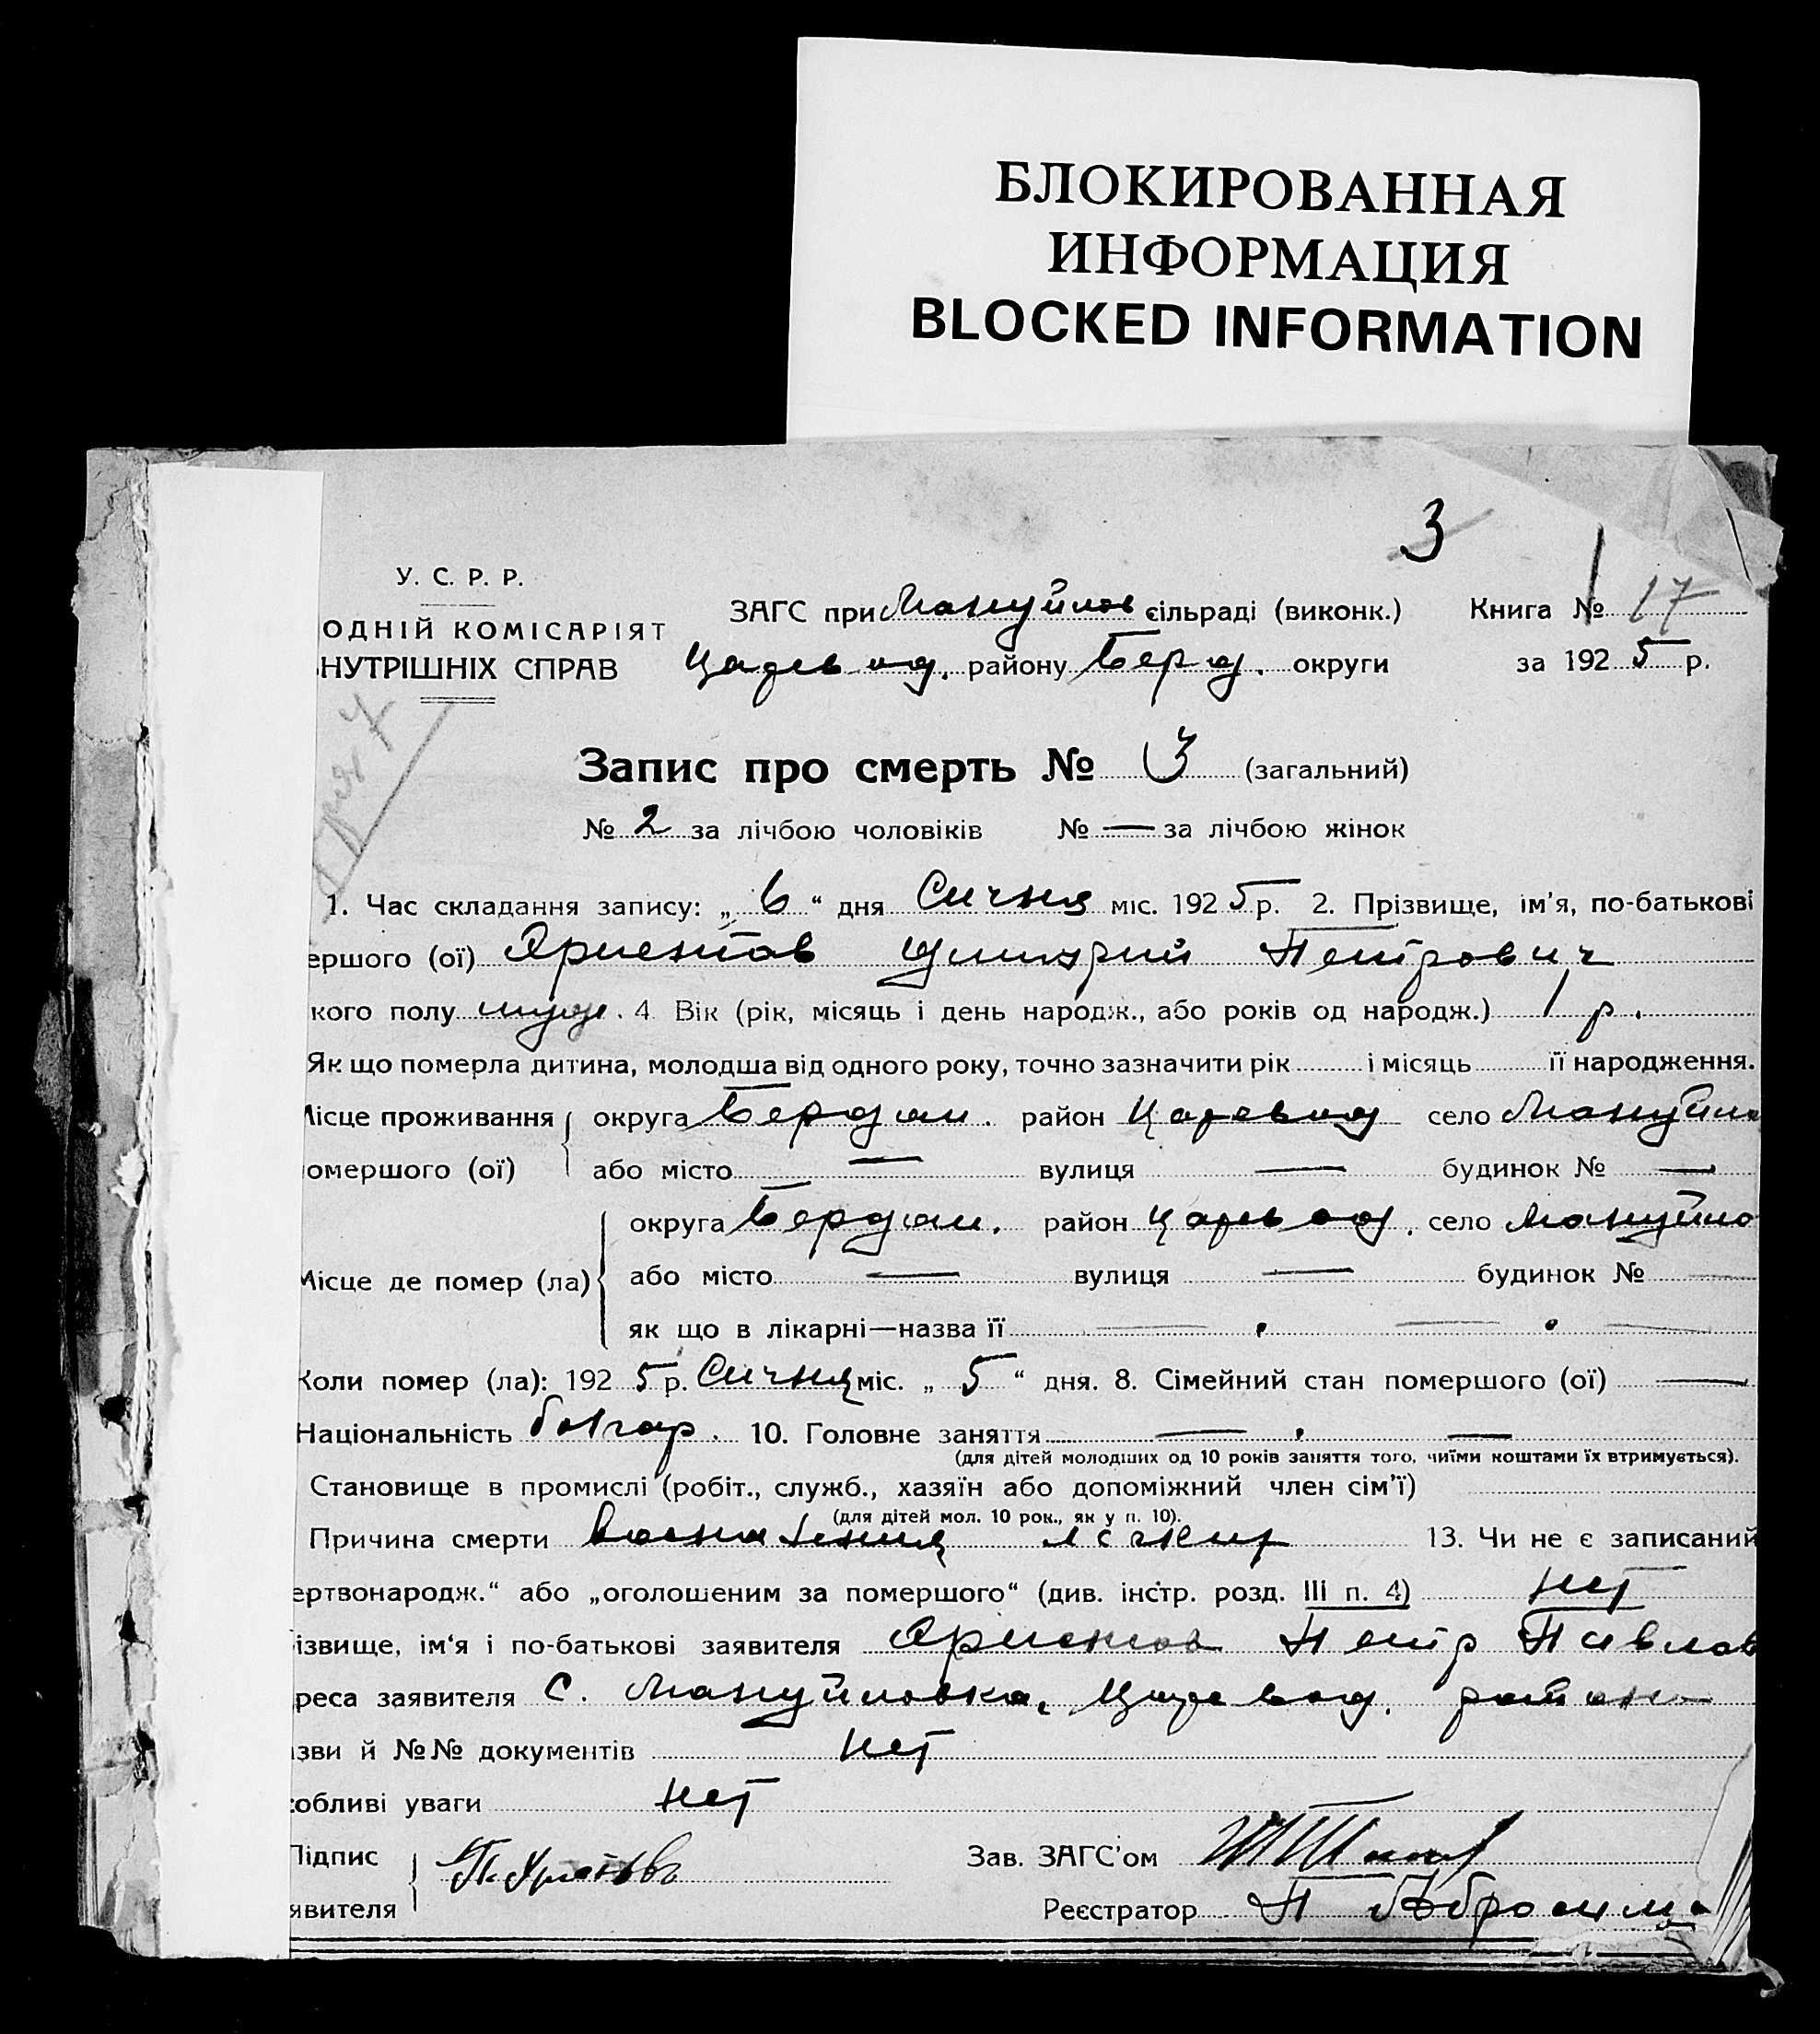 БЛОКИРОВАННАЯ
ИНФОРМАЦИЯ
BLOCKED INFORMATION
3
У. С. Р. Р.
ЗАГС при Мануйлов сільраді (виконк.) Книга № 17
ОДНІЙ КОМІСАРІЯТ
НУТРІШНІХ СПРАВ Царев од. району Берд. округи за 1925 р.
Запис про смерть № 3 (загальний)
№ 2 за лічбою чоловіків № — за лічбою жінок
1. Час складання запису: „6“ дня Сичня міс. 1925 р. 2. Прізвище, ім'я, по-батькові
ершого (ої) Дмитрий Петрович
кого полу муж. 4 Вік (рік, місяць і день народж., або років од народж.) 1 р.
Як що померла дитина, молодша від одного року, точно зазначити рік і місяць її народження.
Місце проживання округа Бердян. район Царевод село Мануйло
омершого (ої) або місто — вулиця — будинок № —
округа Бердян. район Царевод. село Мануйло
Місце де помер (ла) або місто — вулиця — будинок № —
як що в лікарні—назва її
Коли помер (ла): 1925 р. Сичня міс. „5“ дня. 8. Сімейний стан помершого (ої) —
Національність болгар. 10. Головне заняття — —
(для дітей молодших од 10 років заняття того, чиїми коштами їх втримується).
Становище в промислі (робіт., служб., хазяїн або допоміжний член сім'ї)
(для дітей мол. 10 рок., як у п. 10).
Причина смерти 13. Чи не є записаний
ертвонародж.“ або „оголошеним за помершого“ (див. інстр. розд. III п. 4) нет
ізвище, ім'я і по-батькові заявителя Петр Павлов
реса заявителя С. Мануйловка, Царевод. район
зви й №№ документів нет
собливі уваги нет
Підпис Зав. ЗАГС'ом
явителя Реєстратор П